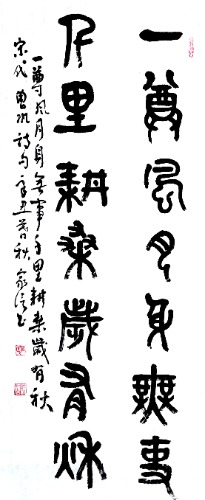 一尊風月身無事
千里耕桑歲有秋
一尊風月身無事千里耕桑歲有秋
宋代曾鞏詩句辛丑春秋家